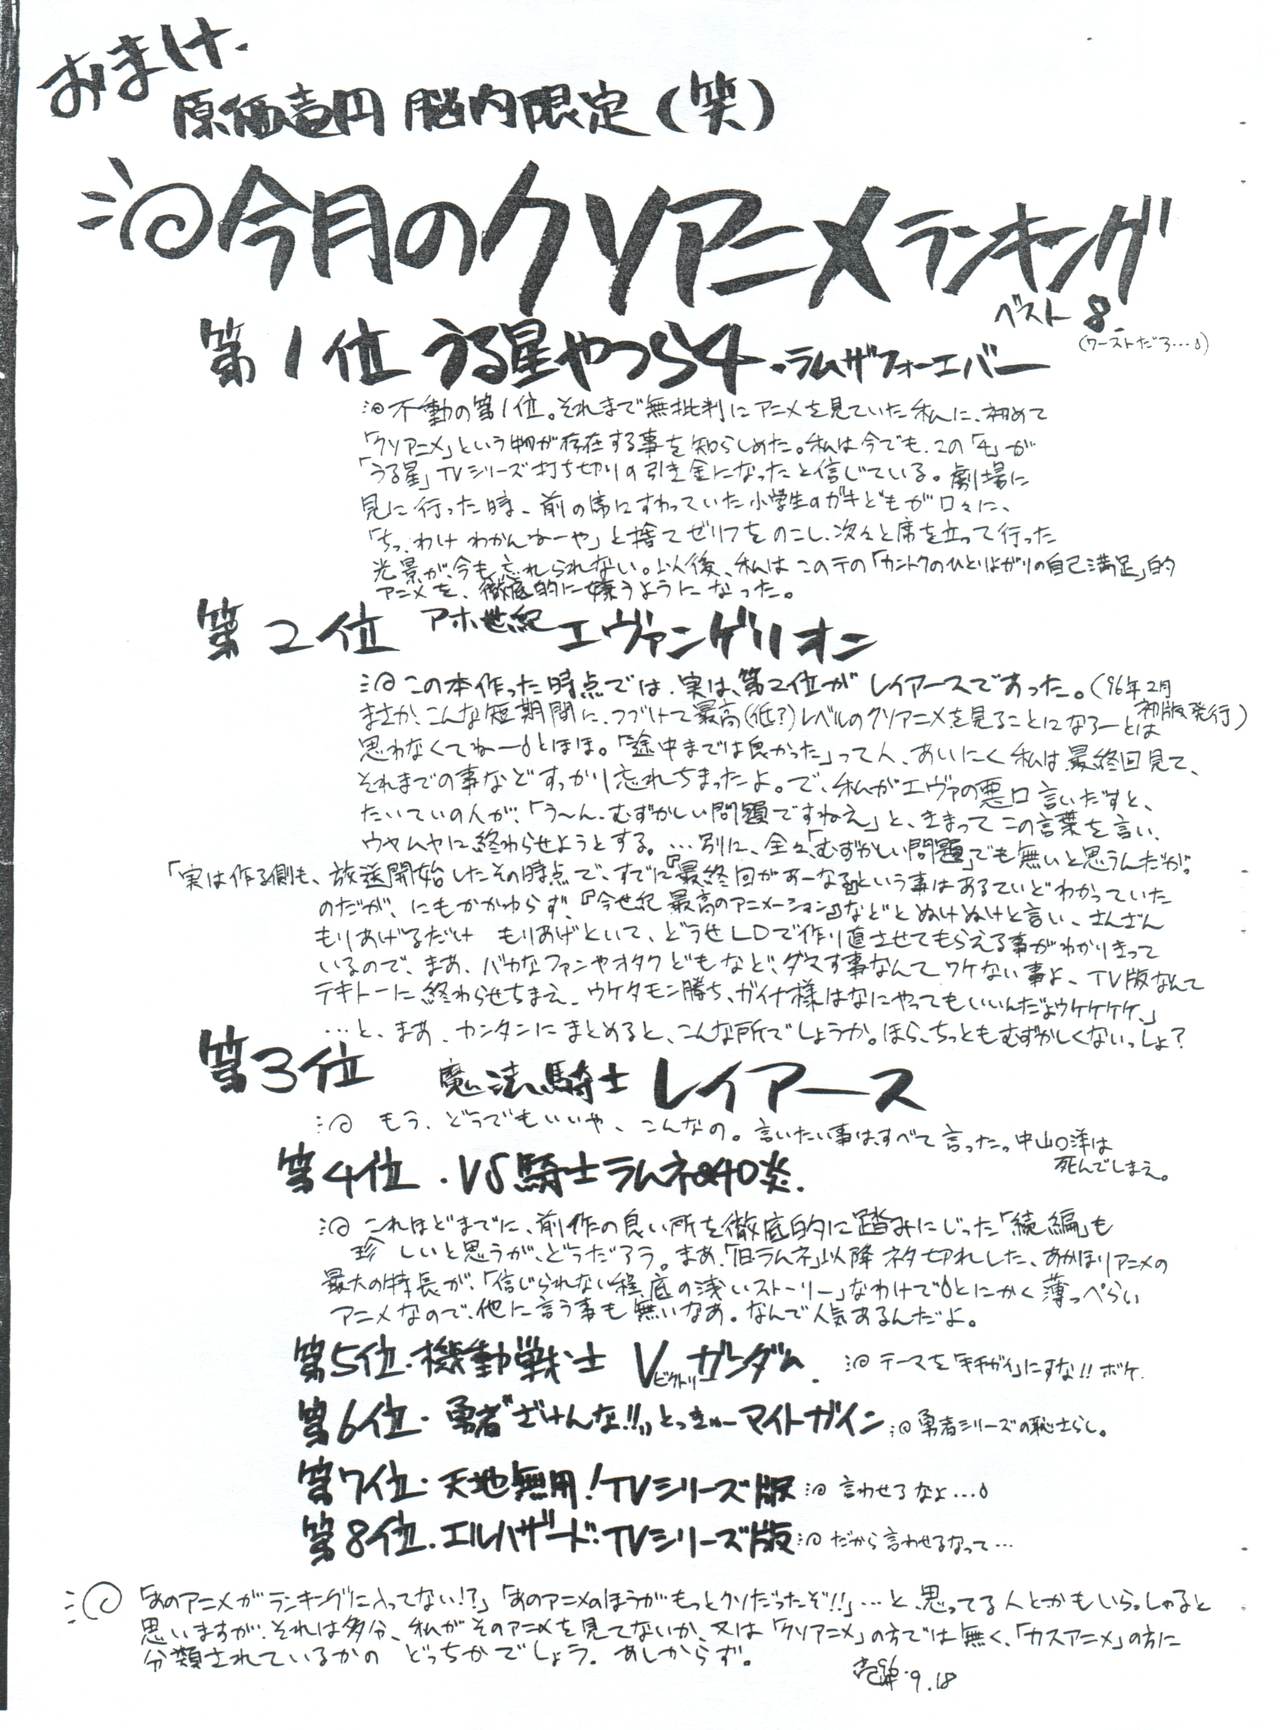 おまけ.
原価壱円 脳内限定(笑)
今月のクソアニメランキング
ベスト8.
(ワーストだろ…)
第1位 うる星やつら4・ラムザフォーエバー
不動の第1位。それまで無批判にアニメを見ていた私に、初めて
「クソアニメ」という物が存在する事を知らしめた。私は今でも、この「4」が
「うる星」TVシリーズ打ち切りの引き金になったと信じている。劇場に
見に行った時、前の席にすわっていた小学生のガキどもが口々に、
「ちっ、わけわかんねーや」と捨てゼリフをのこし、次々と席を立って行った
光景が、今も忘れられない。以後、私はこのテの「カントクのひとりよがりの自己満足」的
アニメを、徹底的に嫌うようになった。
第2位 アホ世紀エヴァンゲリオン
この本作った時点では、実は、第2位がレイアースであった。(96年2月
初版発行)
まさか、こんな短期間に、つづけて最高(低?)レベルのクソアニメを見ることになろーとは
思わなくてねーとほほ。「途中までは良かった」って人、あいにく私は最終回見て、
それまでの事などすっかり忘れちまったよ。で、私がエヴァの悪口言いだすと、
たいていの人が、「う〜ん、むずかしい問題ですねえ」と、きまってこの言葉を言い、
ウヤムヤに終わらせようとする。…別に、全々「むずかしい問題」でも無いと思うんだが。
「実は作る側も、放送開始したその時点で、すでに『最終回があーなる』という事はあるていどわかっていた
のだが、にもかかわらず、『今世紀最高のアニメーション』などとぬけぬけと言い、さんざん
もりあげるだけ もりあげといて、どうせLDで作り直させてもらえる事がわかりきって
いるので、まあ、バカなファンやオタクどもなど、ダマす事なんてワケない事よ、TV版なんて
テキトーに終わらせちまえ、ウケタモン勝ち、ガイナ様はなにやってもいいんだよウケケケケ、」
…と、まあ、カンタンにまとめると、こんな所でしょうか。ほら、ちっともむずかしくないっしょ?
第3位 魔法騎士レイアース
もう、どうでもいいや、こんなの。言いたい事は、すべて言ったっ。中山口洋は
死んでしまえ。
第4位・VS騎士ラムネ&40炎.
これほどまでに、前作の良い所を徹底的に踏みにじった「続編」も
珍しいと思うが、どうだろう。まあ、「旧ラムネ」以降ネタ切れした、あかほりアニメの
最大の特長が、「信じられない程、底の浅いストーリー」なわけでとにかく薄っぺらい
アニメなので、他に言う事も無いなあ。なんで人気あるんだよ。
第5位・機動戦士 Vガンダム.
ビクトリー
テーマを「キチガイ」にすな!!ボケ.
第6位・勇者"ざけんな!!"とっきゅーマイトガイン 勇者シリーズの恥さらし。
第7位・天地無用!TVシリーズ版 言わせるなよ…
第8位・エルハザード・TVシリーズ版 だから言わせるなって…
「あのアニメがランキングに入ってない!?」「あのアニメのほうがもっとクソだったぞ!!」…と、思ってる人とかもいらっしゃると
思いますが、それは多分、私がそのアニメを見てないか、又は「クソアニメ」の方では無く、「カスアニメ」の方に
分類されているかの どっちかでしょう。あしからず。
9.18